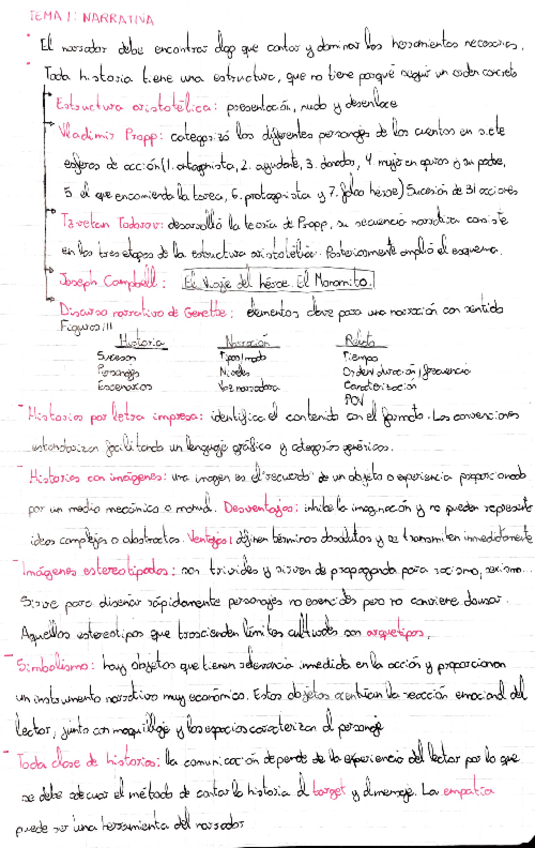 TEMA 1: NARRATIVA
- El narrador debe encontrar algo que contar y dominar las herramientas necesarias.
- Toda historia tiene una estructura, que no tiene porqué seguir un orden concreto
Estructura aristotélica: presentación, nudo y desenlace
Vladimir Propp: categorizó los diferentes personajes de los cuentos en siete
esferas de acción (1. antagonista, 2. ayudante, 3. donador, 4. mujer en apuros y su padre,
5 el que encomienda la tarea, 6. protagonista y 7. falso héroe) Sucesión de 31 acciones
Tzvetan Todorov: desarrolló la teoría de Propp, su secuencia narrativa consiste
en las tres etapas de la estructura aristotélica. Posteriormente amplió el esquema.
Joseph Campbell: El Viaje del héroe. El Monomito.
Discurso narrativo de Genette: elementos clave para una narración con sentido
Figuras III
Historia Narración Relato
Sucesos Tipos/modo Tiempo
Personajes Niveles Orden/duración/frecuencia
Escenarios Voz narradora Caracterización
POV
- Historias por letra impresa: identifica el contenido con el formato. Las convenciones
estandarizan facilitando un lenguaje gráfico y categorías genéricas.
- Historias con imágenes: una imagen es el "recuerdo" de un objeto o experiencia proporcionado
por un medio mecánico o manual. Desventajas: inhibe la imaginación y no pueden representar
ideas complejas o abstractas. Ventajas: definen términos absolutos y se transmiten inmediatamente
- Imágenes estereotipadas: son triviales y sirven de propaganda para racismo, sexismo...
Sirve para diseñar rápidamente personajes no esenciales pero no conviene abusar.
Aquellos estereotipos que trascienden límites culturales son arquetipos.
- Simbolismo: hay objetos que tienen relevancia inmediata en la acción y proporcionan
un instrumento narrativo muy económico. Estos objetos acentúan la reacción emocional del
lector, junto con maquillaje y los espacios caracterizan al personaje
- Toda clase de historias: la comunicación depende de la experiencia del lector por lo que
se debe adecuar el método de contar la historia al target y al mensaje. La empatía
puede ser una herramienta del narrador